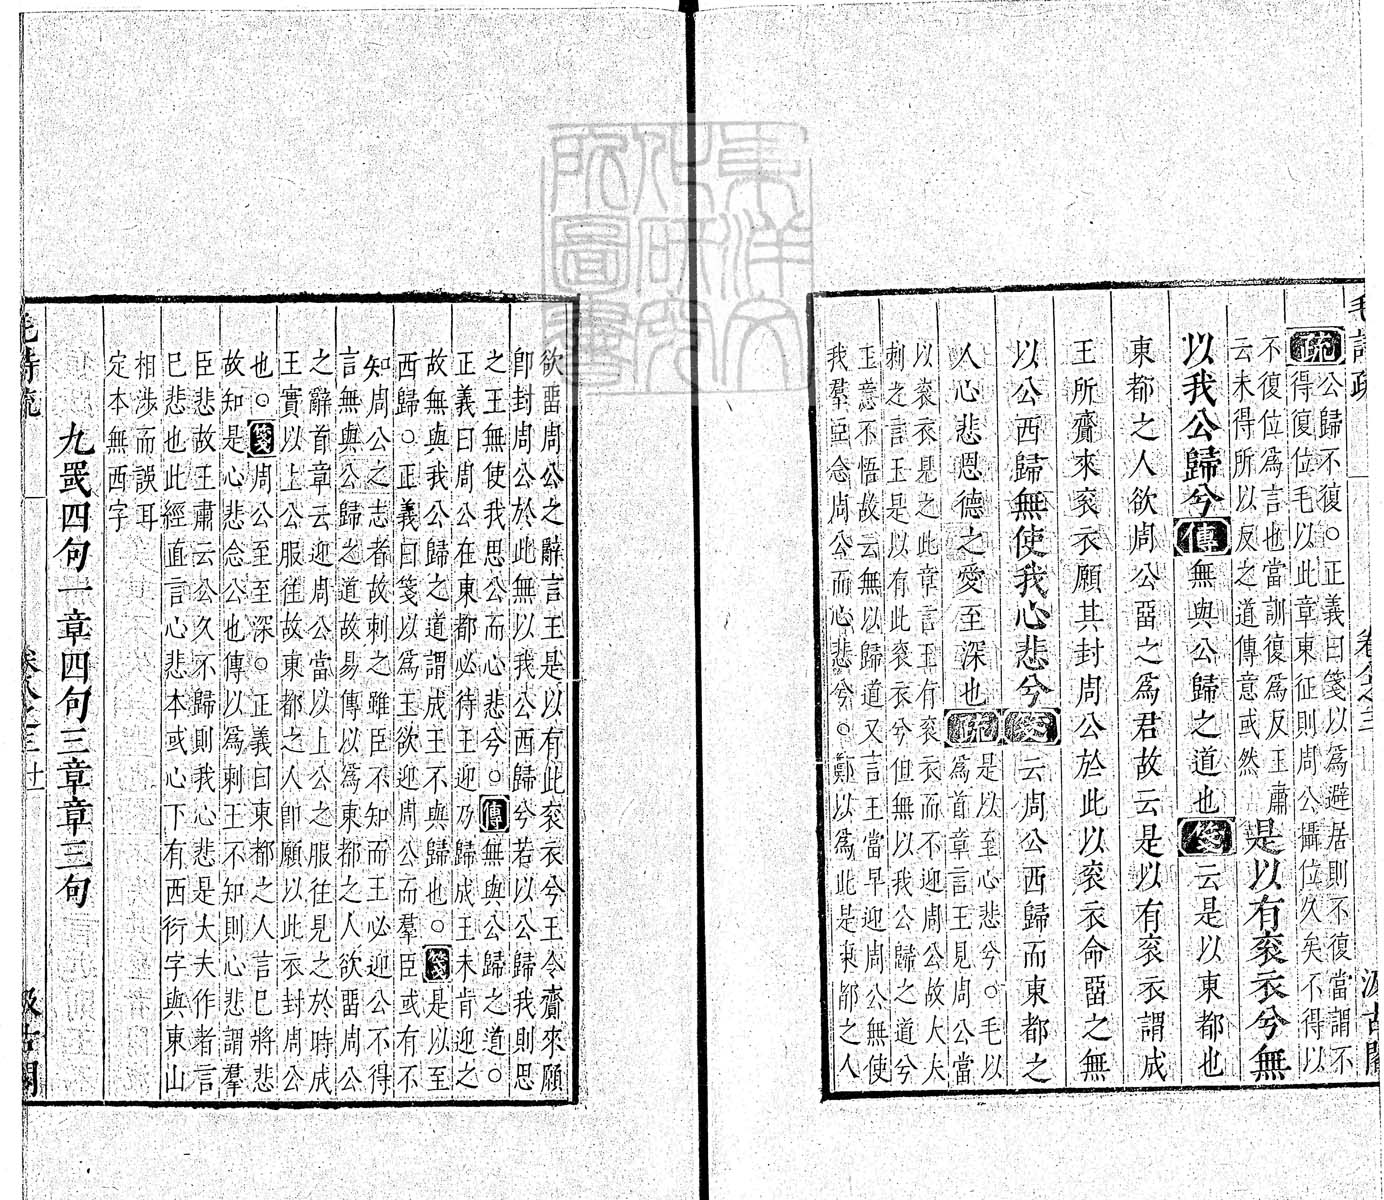 毛詩疏
卷八之三
汲古閣
疏公歸不復○正義曰箋以爲避居則不復當謂不
得復位毛以此章東征則周公攝位久矣不得以
不復位爲言也當訓復爲反王肅
云未得所以反之道傳意或然
是以有袞衣兮無
以我公歸兮傳無與公歸之道也箋云是以東都也
東都之人欲周公畱之爲君故云是以有袞衣謂成
王所齎來袞衣願其封周公於此以袞衣命畱之無
以公西歸無使我心悲兮箋云周公西歸而東都之
人心悲恩德之愛至深也疏是以至心悲兮○毛以
爲首章言王見周公當
以袞衣見之此章言王有袞衣而不迎周公故大夫
刺之言王是以有此袞衣兮但無以我公歸之道兮
王意不悟故云無以歸道又言王當早迎周公無使
我羣臣念周公而心悲兮○鄭以爲此是東都之人
欲畱周公之辭言王是以有此袞衣兮王令齎來願
卽封周公於此無以我公西歸兮若以公歸我則思
之王無使我思公而心悲兮○傳無與公歸之道○
正義曰周公在東都必待王迎乃歸成王未肯迎之
故無與我公歸之道謂成王不與歸也○箋是以至
西歸○正義曰箋以爲王欲迎周公而羣臣或有不
知周公之志者故刺之雖臣不知而王必迎公不得
言無與公歸之道故易傳以爲東都之人欲畱周公
之辭首章云迎周公當以上公之服往見之於時成
王實以上公服往故東都之人卽願以此衣封周公
也○箋周公至至深○正義曰東都之人言已將悲
故知是心悲念公也傳以爲刺王不知則心悲謂羣
臣悲故王肅云公久不歸則我心悲是大夫作者言
已悲也此經直言心悲本或心下有西衍字與東山
相涉而誤耳
定本無西字
九罭四句一章四句三章章三句
毛詩疏
卷八之三
汲古閣
東洋文
化研究
所圖書